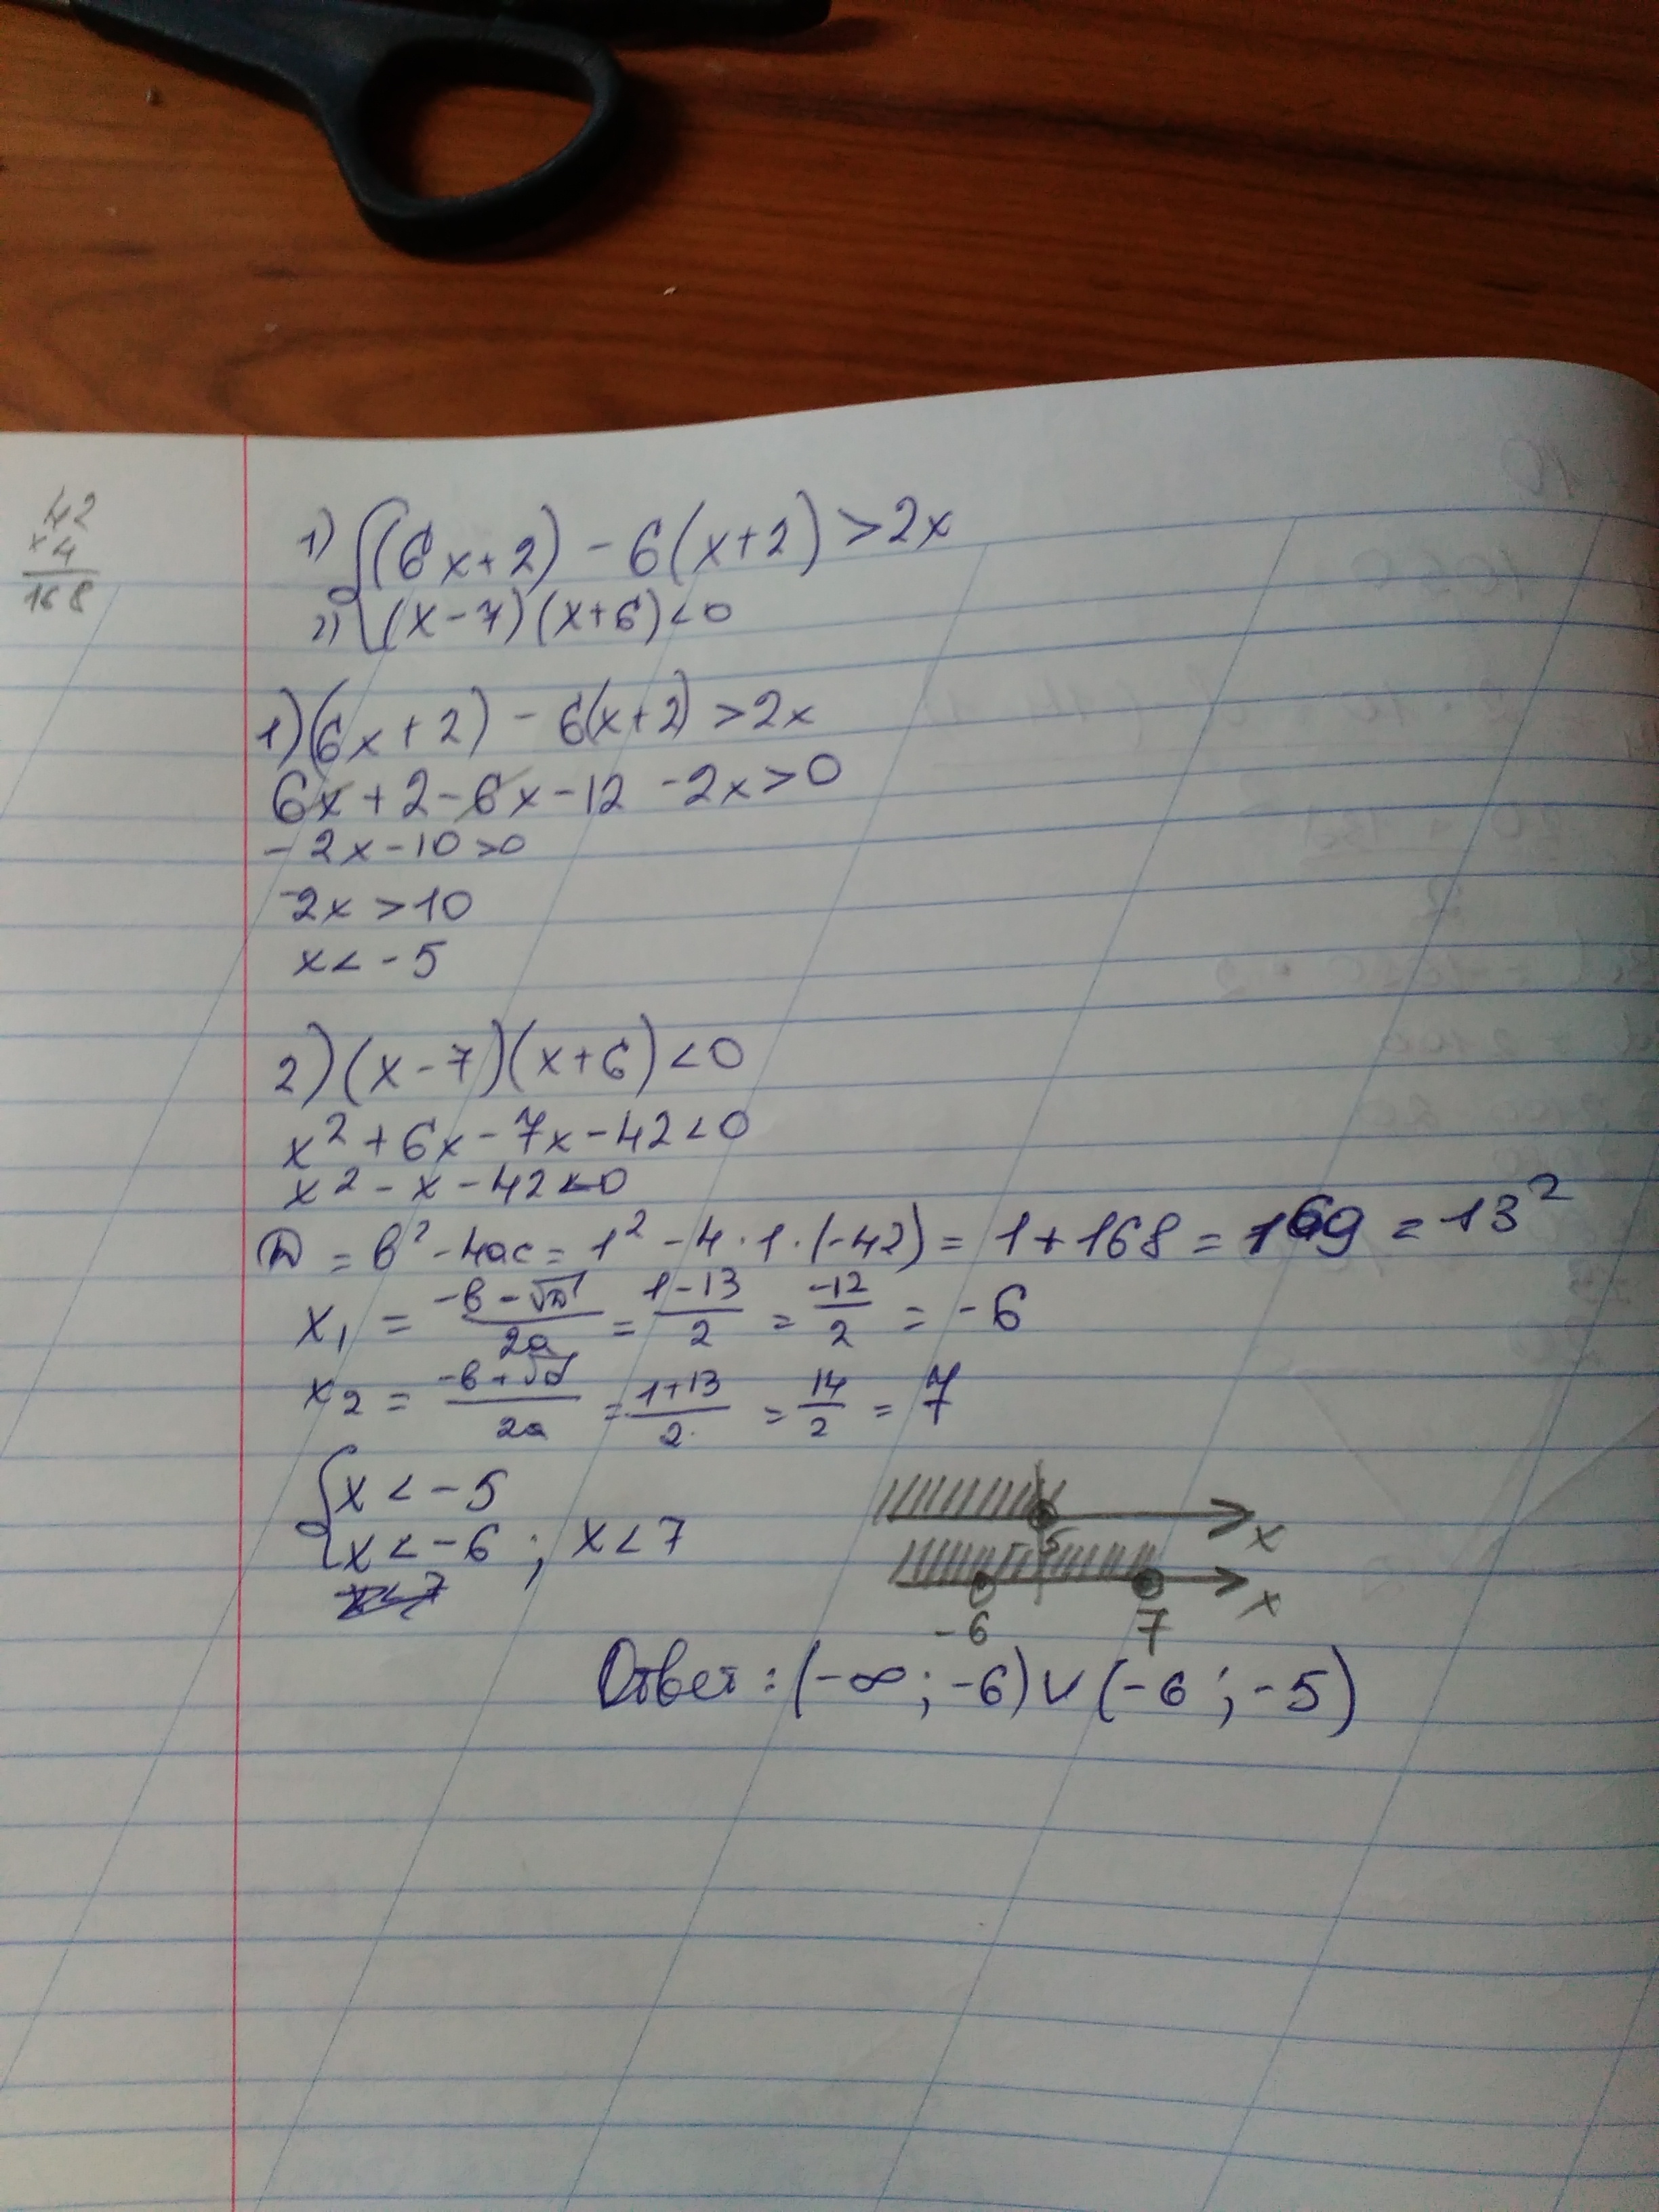 42
× 4
168
1) (6x+2) - 6(x+2) > 2x
2) (x-7)(x+6) < 0
1) (6x+2) - 6(x+2) > 2x
6x + 2 - 6x - 12 - 2x > 0
- 2x - 10 > 0
-2x > 10
x < - 5
2) (x-7)(x+6) < 0
x² + 6x - 7x - 42 < 0
x² - x - 42 < 0
D = b² - 4ac = 1² - 4 · 1 · (-42) = 1 + 168 = 169 = 13²
x₁ = (-b - √D)/2a = (1-13)/2 = -12/2 = -6
x₂ = (-b + √D)/2a = (1+13)/2 = 14/2 = 7
x < -5
x < -6 ; x < 7
x
5
x
-6 7
Ответ: (-∞; -6) ∪ (-6; -5)